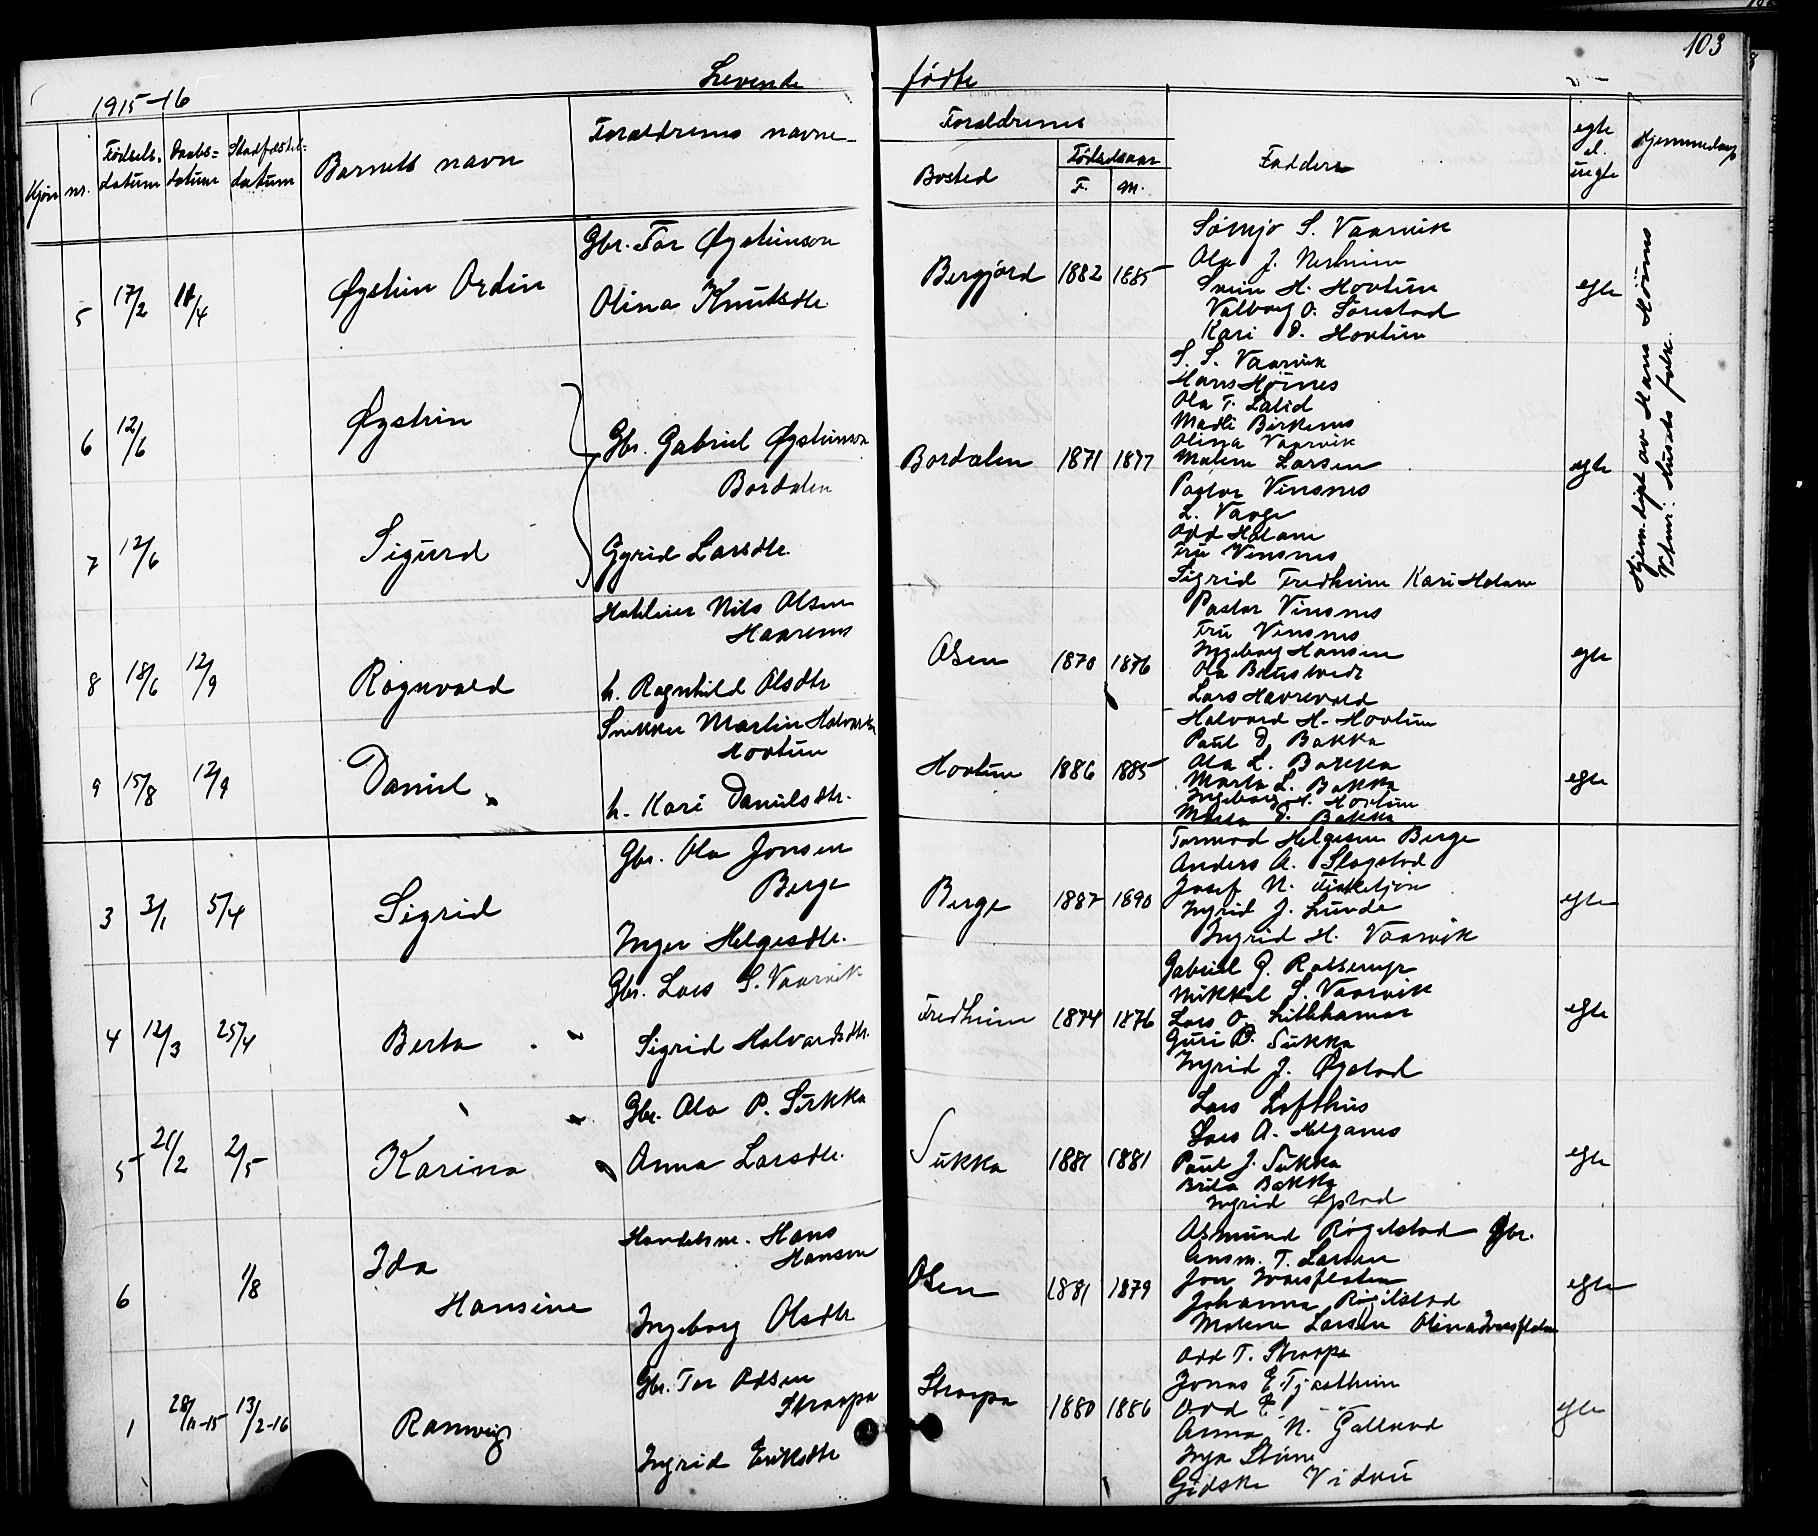 103
Levende fødte
1915-16
Kjøn
nr.
Fødsels-datum
Daabs-datum
Stadfæstel-datum
Barnets navn
Forældrenes navne
Forældrenes
Bosted
Fødselsaar
F. M.
Faddere
egte el. uegte
Hjemmedaap
5 17/2 11/4 Øystein Ordin
Gbr. Tor Øysteinson
Olina Knutsdtr.
Bergjord 1882 1885
Sønjo S. Vaarvik
Ola J. Nesheim
Svein H. Hovtun
Valborg O. Sørestad
Kari D. Hovtun
egte
6 12/6 Øystein
7 12/6 Sigurd
Gbr. Gabriel Øysteinson
Bordalen
Gyrid Larsdtr.
Bordalen 1871 1877
S. S. Vaarvik
Hans Høines
Ola T. Lalid
Madli Birkenes
Olina Vaarvik
Malene Larsen
Pastor Vinsnes
L. Varge
Odd Holam
Fru Vinsnes
Sigrid Fredheim Kari Holam
egte
Hjem.døpt av Hans Høines
Vitner: Husets folk.
8 18/6 12/9 Rognvald
Hoteleier Nils Olsen
Haarenes
h. Ragnhild Olsdtr
Osen 1870 1876
Pastor Vinsnes
Fru Vinsnes
Ingeborg Hansen
Ola
Lars Havrevold
egte
9 15/8 12/9 Daniel
Snekker Martin Halvards
Hovtun
h. Kari Danielsdtr.
Hovtun 1886 1885
Halvard H. Hovtun
Paul D. Bakka
Ola L. Bakka
Marta L. Bakka
Ingeborg H. Hovtun
Marta D. Bakka
egte
3 3/1 5/4 Sigrid
Gbr. Ola Jonsen
Berge
Inger Helgesdtr.
Berge 1887 1890
Tormod Helgesen Berge
Anders A. Slogstad
Josef N. Fisketjøn
Ingrid J. Lunde
Ingrid H. Vaarvik
egte
4 12/3 25/4 Berta
Gbr. Lars S. Vaarvik
Sigrid Halvardsdtr.
Fredheim 1874 1876
Gabriel G.
Mikkel S. Vaarvik
Lars O. Lillehamar
Guri O. Sukka
Ingrid J. Øystad
egte
5 21/2 2/5 Karina
Gbr. Ola P. Sukka
Anna Larsdtr.
Sukka 1881 1881
Lars Lofthus
Lars A. Helganes
Paul J. Sukka
Brita Bakka
Ingrid Øystad
egte
6 1/8 Ida
Hansine
Handelsm. Hans
Hansen
Ingeborg Olsdtr
Osen 1881 1879
Asmund Røgelstad Gbr.
Ansm. T. Larsen
Jon Ivarsflaten
Johanna Røgelstad
Malene Larsen Olina Ivarsflaten
egte
1 28/11-15 13/2-16 Ranveig
Gbr. Tor Odsen
Straapa
Ingrid Eriksdtr
Straapa 1880 1886
Odd T. Straapa
Jonas E. Tjeltheim
Odd E. " "
Anna N. Galland
Inga Støine
Gidske Vidvei
egte